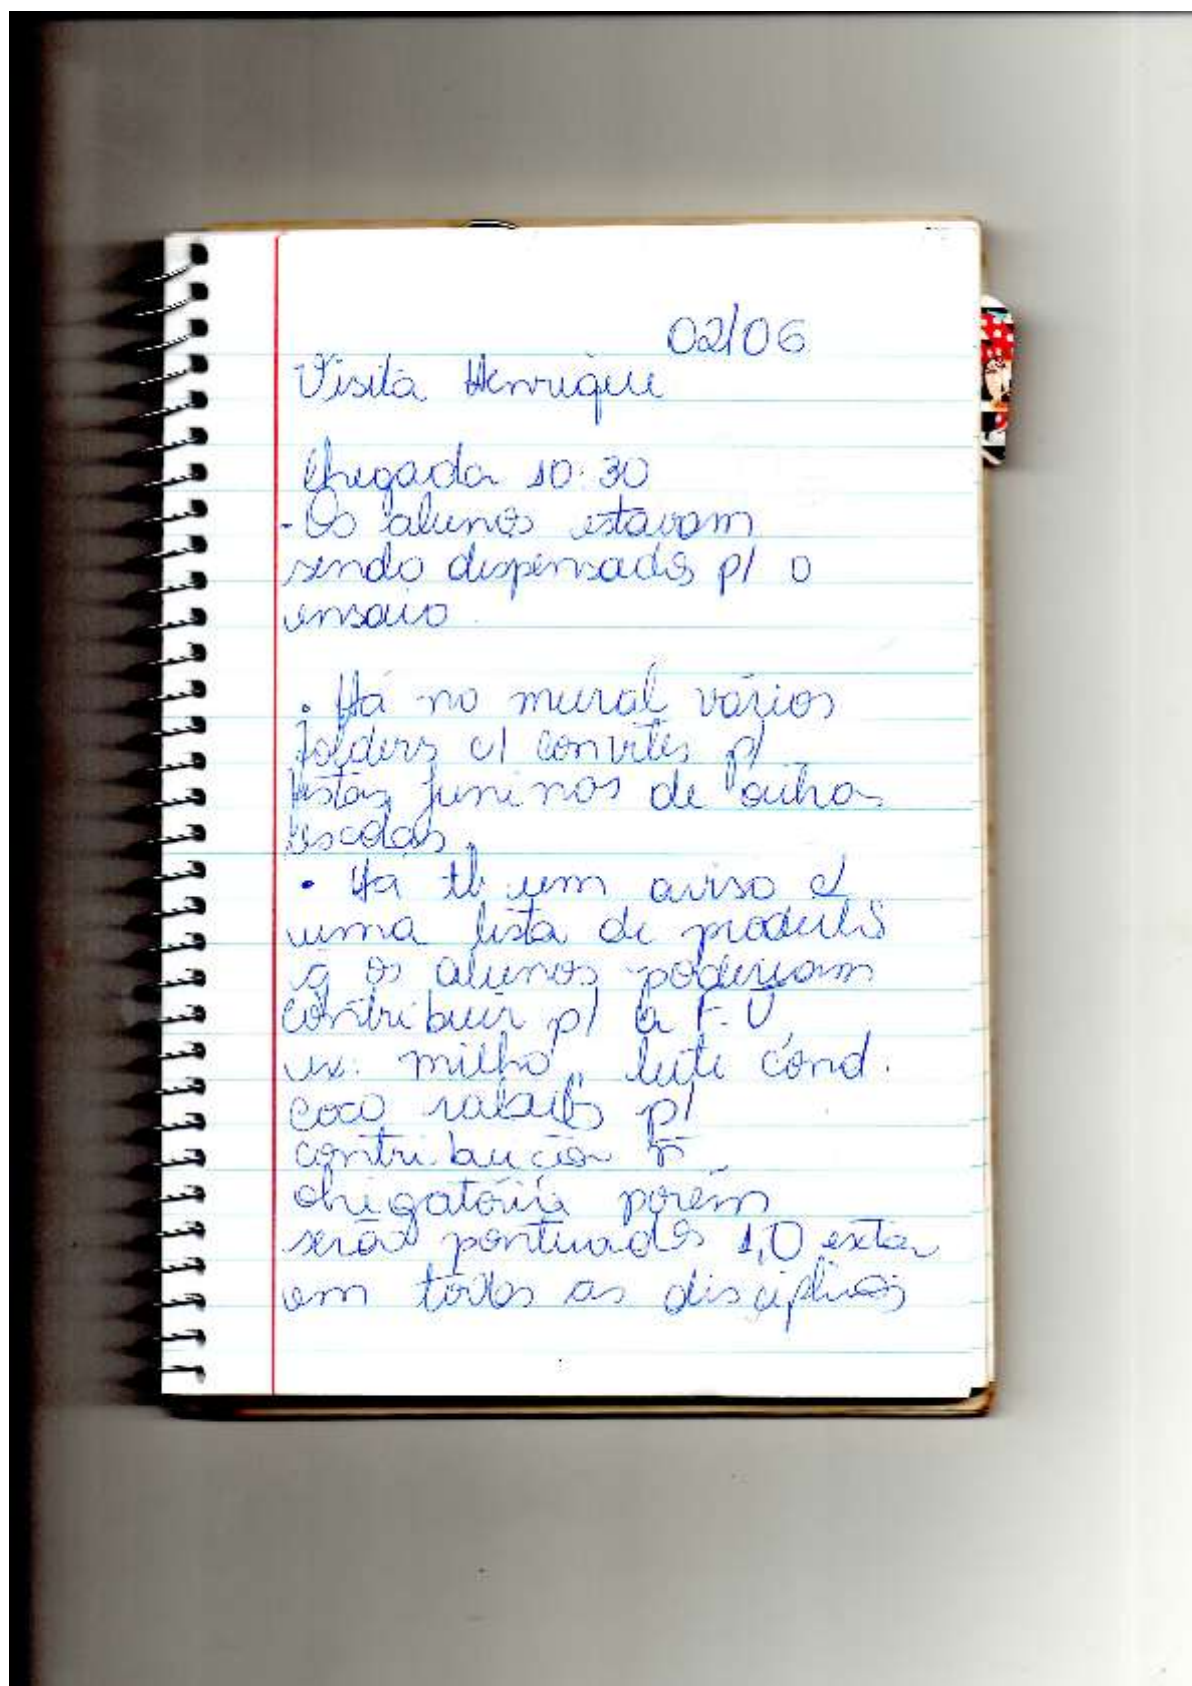 02/06
Visita Henrique
Chegada 10:30
- Os alunos estavam
sendo dispensados p/ o
ensaio.
• Há no mural vários
folders c/ convites p/
festas juninas de outras
escolas.
• Há tb um aviso c/
uma lista de produtos
q os alunos poderiam
contribuir p/ a F.J
ex: milho, leite cond.
coco ralado p/
contribuição ñ
obrigatória porém
serão pontuados 1,0 extra
em todas as disciplinas